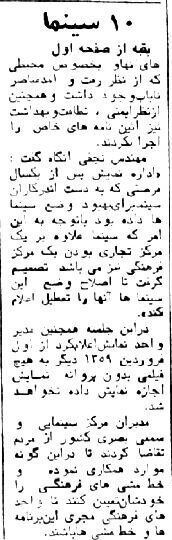 ۱۰ سینما
بقیه از صفحه اول
های بهاو بخصوص محیطی
که از نظر رفت و آمد عناصر
ناباب وجود داشت و همچنین
ازنظر ایمنی ، نظافت و بهداشت
نیز آئین نامه های خاص را
اجرا نکردند.
مهندس نجفی آنگاه گفت :
«اداره نمایش پس از یکسال
فرصتی که به دست اندرکاران
سینما برای بهبود وضع سینما
ها داده بود باتوجه به این
امر که سینما علاوه بر یک
مرکز تجاری بودن یک مرکز
فرهنگی نیز می باشد تصمیم
گرفت تا اصلاح وضع این
سینما ها آنها را تعطیل اعلام
کند»
دراین جلسه همچنین مدیر
واحد نمایش اعلام کرد از اول
فروردین ۱۳۵۹ دیگر به هیچ
فیلمی بدون پروانه نمایش
اجازه نمایش داده نخواهد
شد.
مدیران مرکز سینمایی و
سمعی بصری کشور از مردم
تقاضا کردند تا دراین گونه
موارد همکاری نموده و
خط مشی های فرهنگی را
خودشان تعیین کنند تا واحد
های فرهنگی مجری این برنامه
ها و خط مشی ها باشند.